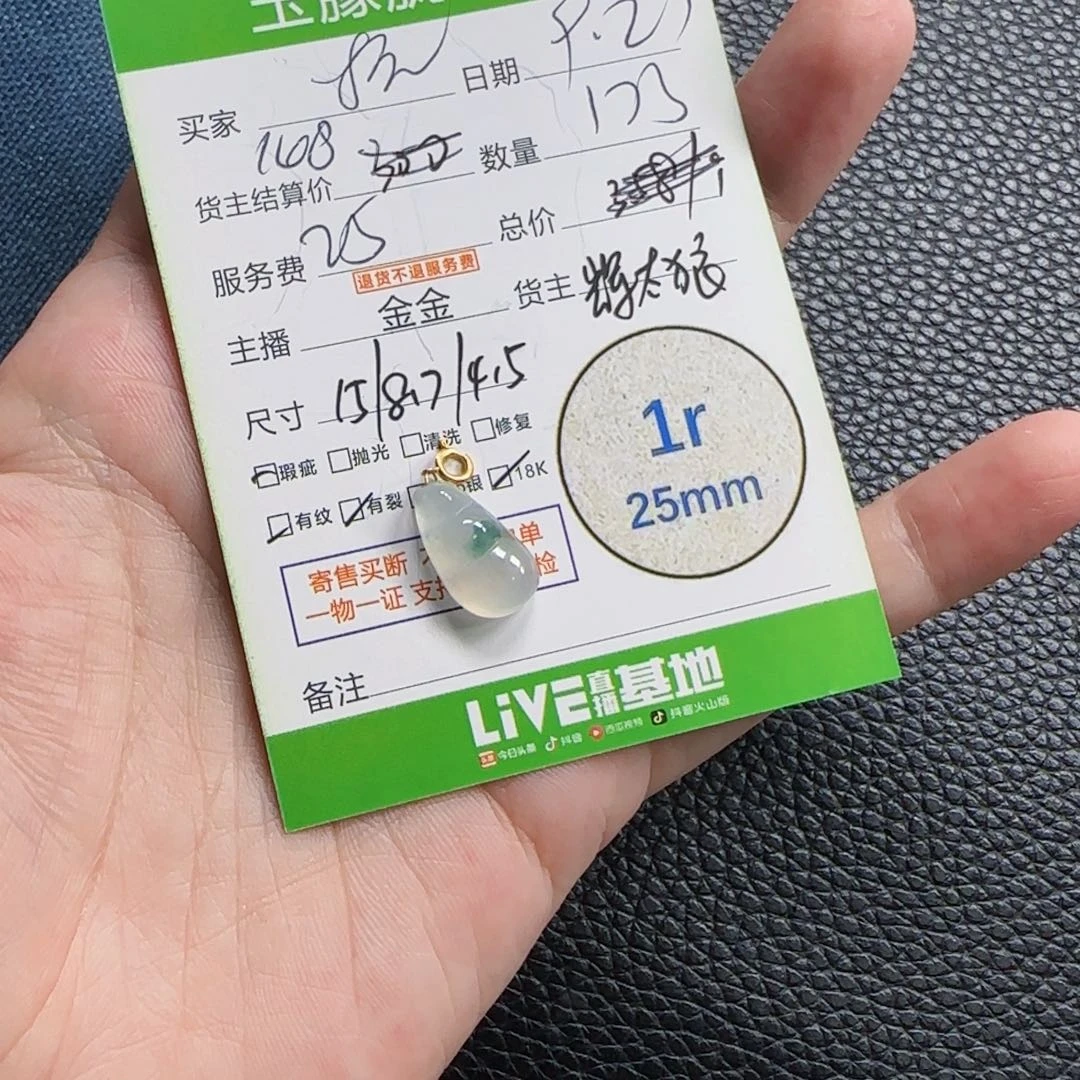 买家 日期 9.21
货主结算价 168 数量 173
服务费 25 总价
退货不退服务费
主播 金金 货主
尺寸 15/8.7/4.5
瑕疵 抛光 清洗 修复
有纹 有裂 银 18K
寄售买断 单
一物一证 支 检
1r
25mm
备注
LiVE直播基地
今日头条 抖音 西瓜视频 抖音火山版